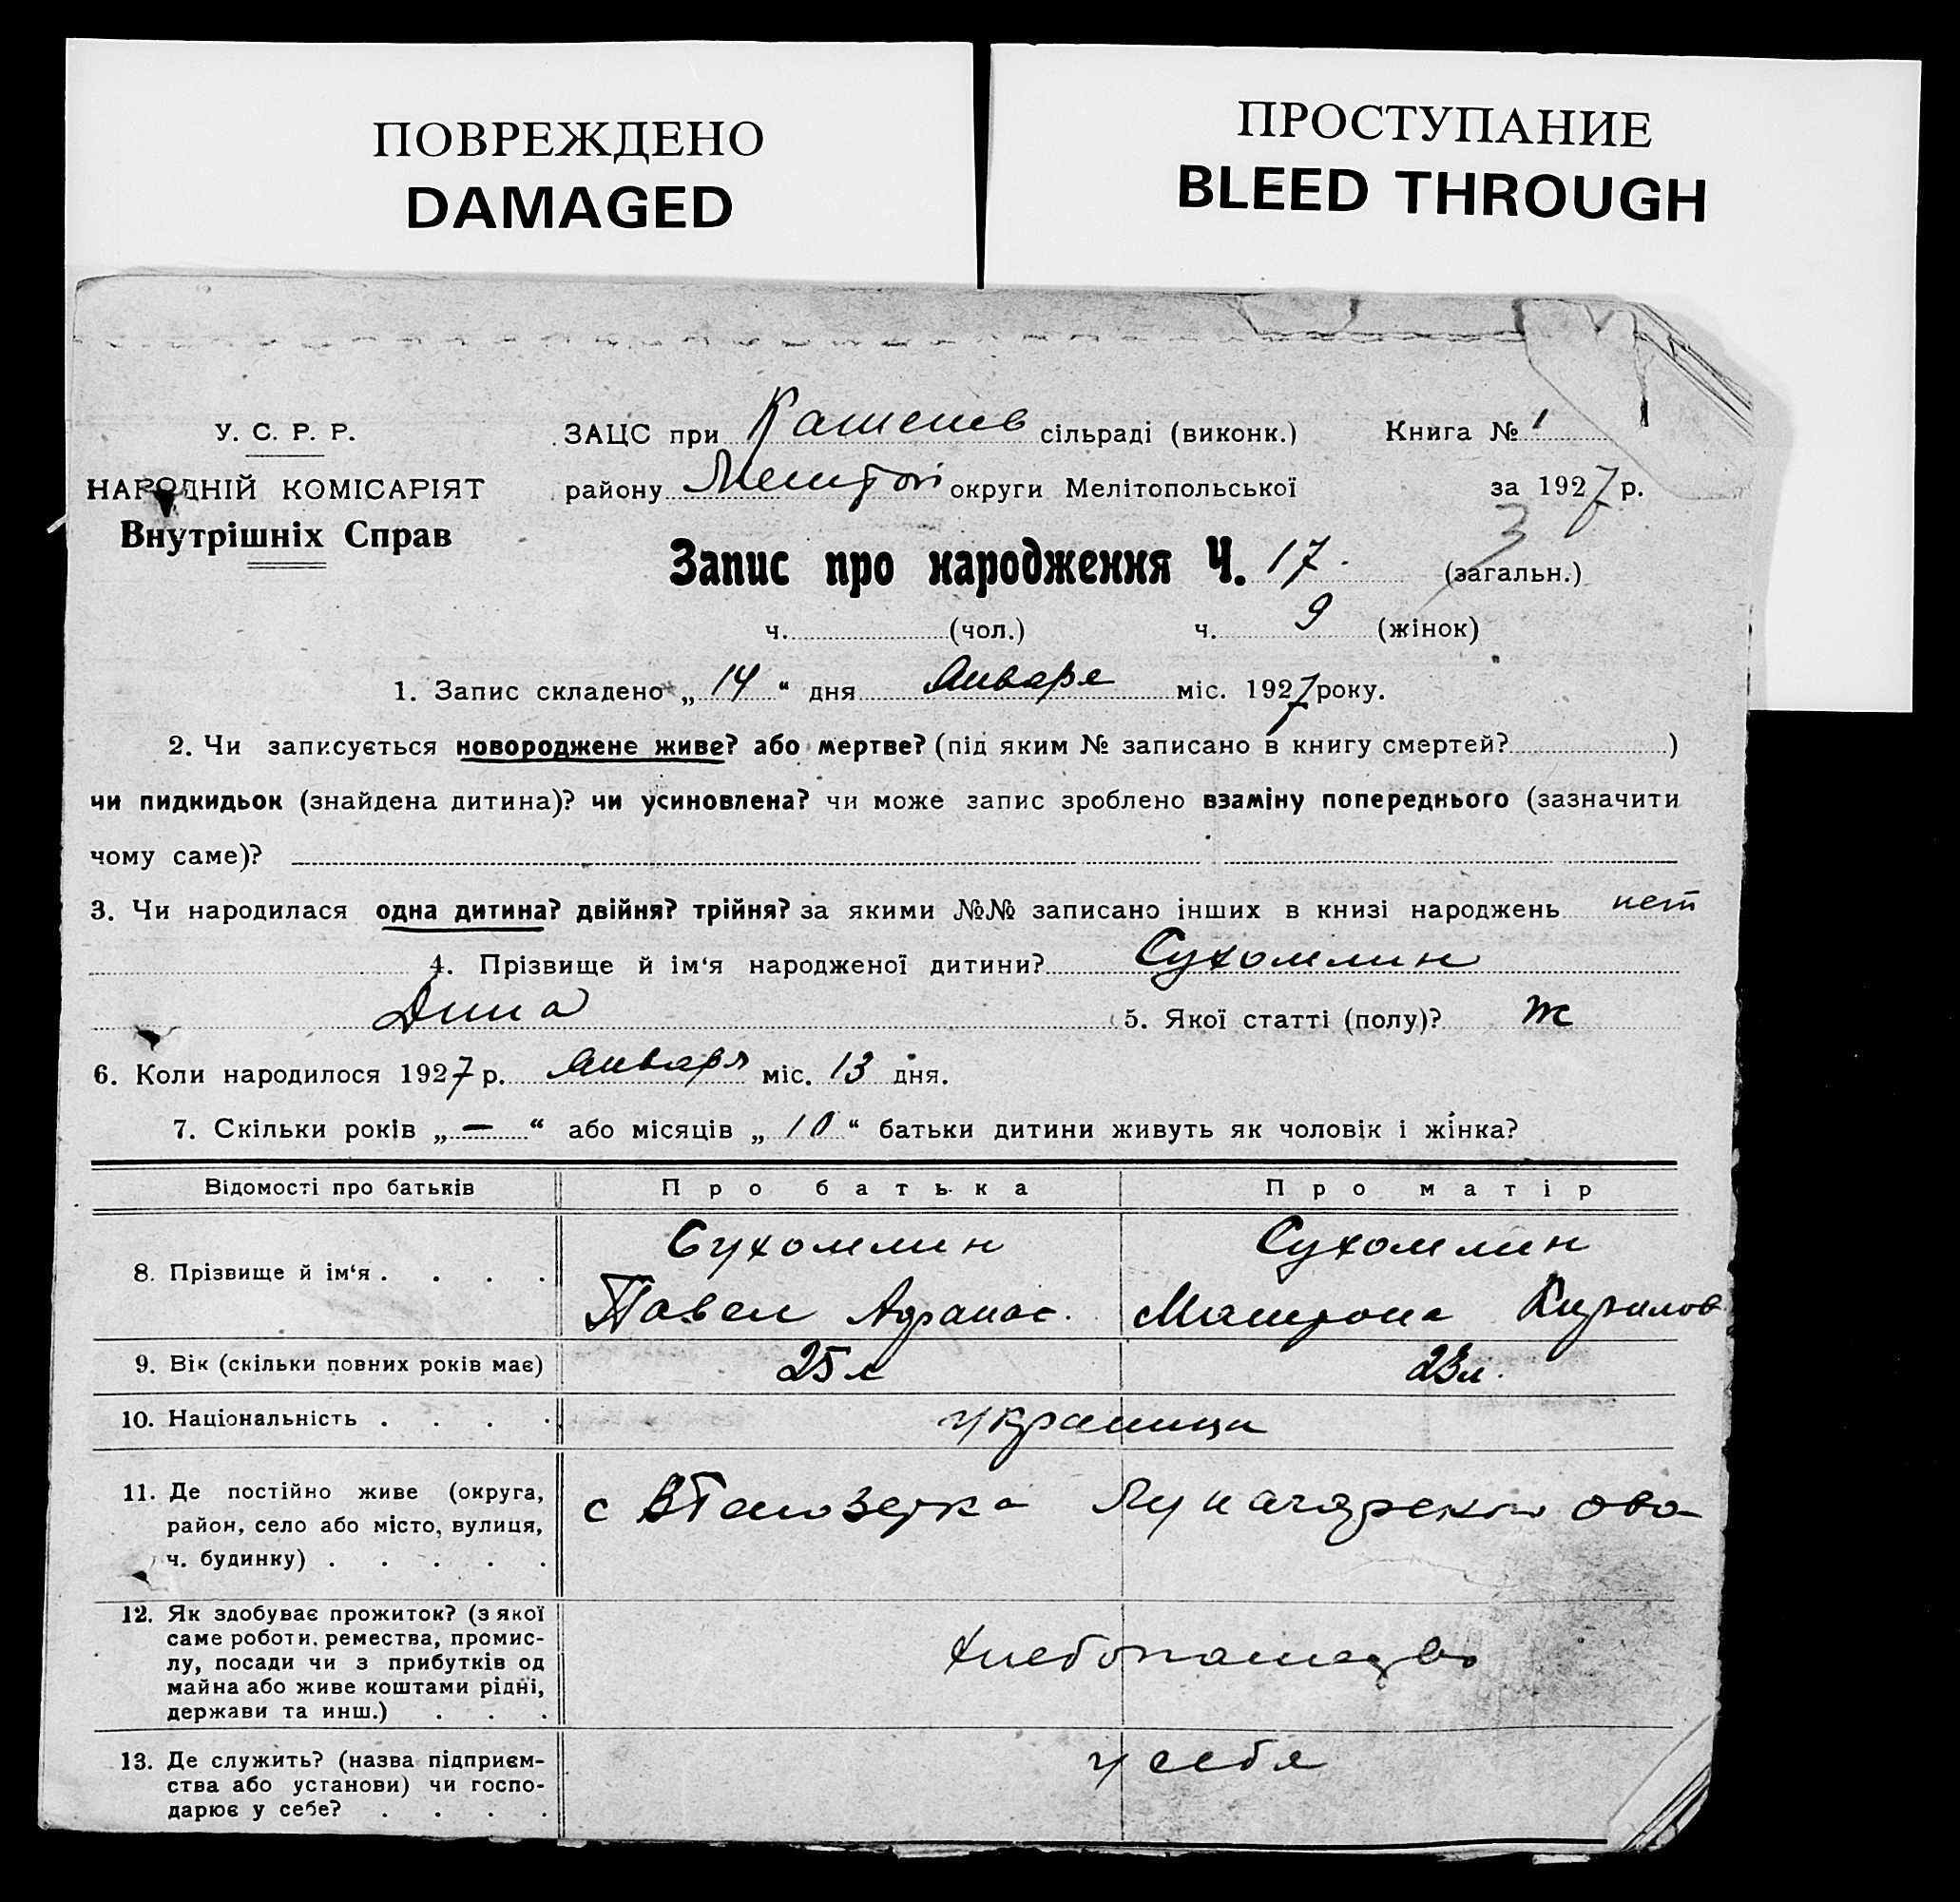 ПОВРЕЖДЕНО
DAMAGED
ПРОСТУПАНИЕ
BLEED THROUGH
У. С. Р. Р.
НАРОДНІЙ КОМІСАРІЯТ
Внутрішніх Справ
ЗАЦС при сільраді (виконк.) Книга № 1
району округи Мелітопольської за 1927 р.
3
Запис про народження Ч. 17. (загальн.)
ч. (чол.) ч. 9 (жінок)
1. Запис складено „ 14 “ дня Января міс. 1927 року.
2. Чи записується новороджене живе? або мертве? (під яким № записано в книгу смертей? )
чи пидкидьок (знайдена дитина)? чи усиновлена? чи може запис зроблено взаміну попереднього (зазначити
чому саме)?
3. Чи народилася одна дитина? двійня? трійня? за якими №№ записано інших в книзі народжень нет
4. Прізвище й ім‘я народженої дитини? Сухомлин
Дина 5. Якої статті (полу)? Ж
6. Коли народилося 1927 р. Января міс. 13 дня.
7. Скільки років „ — “ або місяців „ 10 “ батьки дитини живуть як чоловік і жінка?
Відомості про батьків Про батька Про матір
8. Прізвище й ім‘я . . . . Сухомлин Сухомлин
Павел Афанас. Матрона Кирилов
9. Вік (скільки повних років має) 25 л 23 л.
10. Національність . . . . украинци
11. Де постійно живе (округа, район, село або місто, вулиця, ч. будинку) . . . . . с
12. Як здобуває прожиток? (з якої саме роботи, ремества, промислу, посади чи з прибутків од майна або живе коштами рідні, держави та инш.) . . . хлебопашество
13. Де служить? (назва підприємства або установи) чи господарює у себе? . . . . у себя